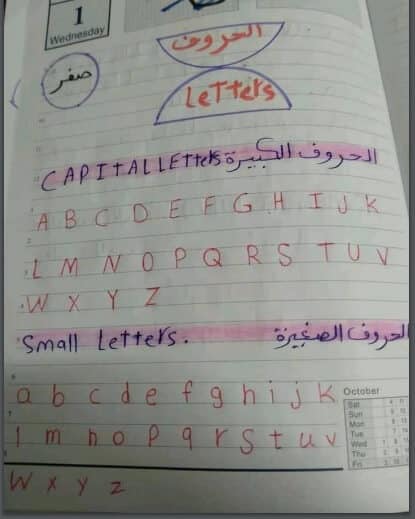 1
Wednesday
الحروف
صفر
LeTTers
CAPITAL LETTers الحروف الكبيرة
A B C D E F G H I J K
L M N O P Q R S T U V
W X Y Z
Small Letters. الحروف الصغيرة
a b c d e f g h i j k
l m n o p q r s t u v
w x y z
October
Sat
Sun
Mon
Tue
Wed
Thu
Fri